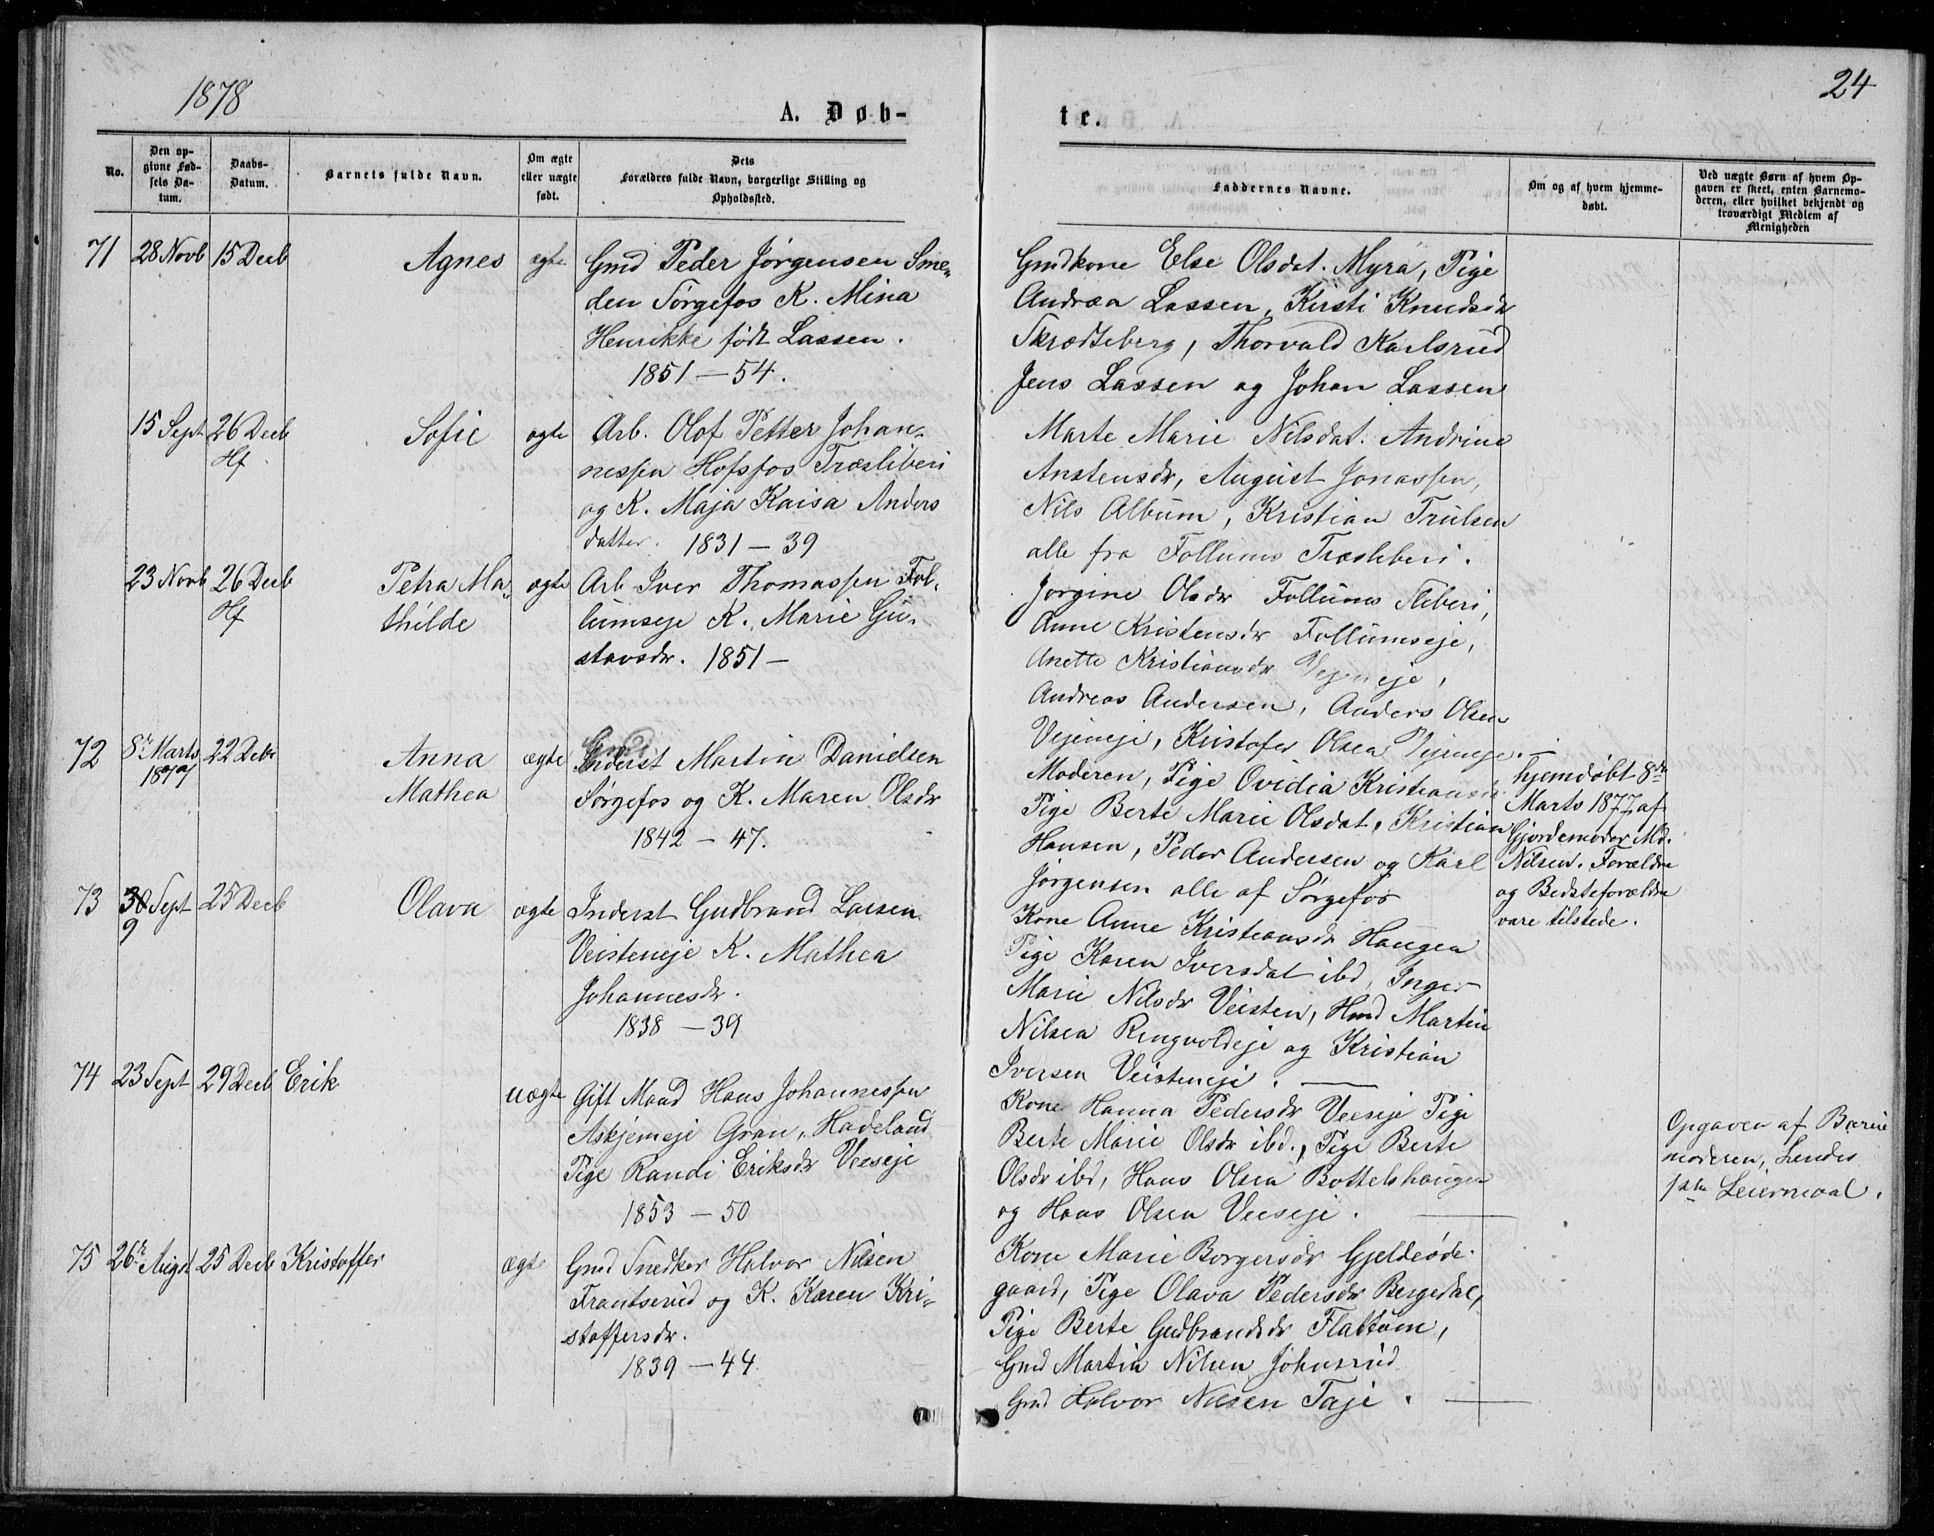 1878
A. Døb-
No.
Den op-
givne Fød-
sels Da-
tum.
Daabs-
Datum.
Barnets fulde Navn.
Om ægte
eller uægte
født.
Dets
Forældres fulde Navn, borgerlige Stilling og
Opholdssted.
71 28 Novb 15 Decb Agnes ægte Gmd Peder Jørgensen Sme-
den Sørgefos K. Mina
Henrikke født Lassen.
1851 – 54.
15 Sept 26 Decb Sofie ægte Arb. Olof Petter Johan-
Hf nessen Hofsfos Træsliberi
og K. Maja Kaisa Anders
datter. 1831 – 39
23 Novb 26 Decb Petra Ma- ægte Arb Iver Thomassen Fol-
Hf thilde lumseje K. Marie Gu-
stavsdr. 1851 –
72 8de Marts 22 Decbr Anna ægte Inderst Martin Danielsen
1877 Mathea Sørgefos og K. Maren Olsdr
1842 – 47.
73 30 Sept 25 Decb Olava ægte Inderst Gudbrand Larsen
9 Veisteneje K. Mathea
Johannesdr.
1838 – 39
74 23 Sept 29 Decb Erik uægte Gift Mand Hans Johannessen
Askjemeje Gran, Hadeland
Pige Randi Eriksdr Veeseje
1853 – 50
75 26de Augst 25 Decb Kristoffer ægte Gmd Snedker Halvor Nilsen
Frantserud og K. Karen Kri-
stoffersdr.
1839 – 44
24
te.
Faddernes Navne.
Om og af hvem hjemme-
døbt.
Ved uægte Børn af hvem Op-
gaven er skeet, enten Barnemo-
deren, eller hvilket bekjendt og
troværdigt Medlem af
Menigheden
Gmdkone Else Olsdat. Myra, Pige
Andrea Lassen, Kirsti Knudsdr
Skrædteberg, Thorvald Karlsrud
Jens Lassen og Johan Lassen
Marte Marie Nilsdat. Andrine
Anstensdr, August Jonassen,
Nils Album, Kristian Trulsen
alle fra Follums Træsliberi.
Jorgine Olsdr Follums Sliberi,
Anne Kristensdr Follumseje,
Anette Kristiansdr Vejeneje,
Andreas Andersen, Anders Olsen
Vejeneje, Kristofer Olsen Vejeneje. –
Moderen, Pige Ovidia Kristiansdr
Pige Berte Marie Olsdat, Kristian
Hansen, Peder Andersen og Karl
Jørgensen alle af Sørgefos
hjemdøbt 8de
Marts 1877 af
Gjordemoder Md.
Nilsen. Forældre
og Bedsteforældre
vare tilstede.
Kone Anne Kristiansdr Haugen
Pige Karen Iversdat ibd, Inger
Marie Nilsdr Veisten, Hmd Martin
Nilsen Ringvoldeje og Kristian
Iversen Veisteneje. –
Kone Hanna Pedersdr Veeseje Pige
Berte Marie Olsdr ibd., Pige Berte
Olsdr ibd, Hans Olsen Bottelshaugen
og Hans Olsen Veeseje.
Opgaven af Barne
moderen, Hendes
1ste Leiermaal.
Kone Marie Borgersdr Gjeldeøde-
gaard, Pige Olava Pedersdr Bergedal,
Pige Berte Gudbrandsdr Flattum,
Gmd Martin Nilsen Johnsrud
Gmd Halvor Nilsen Taje.